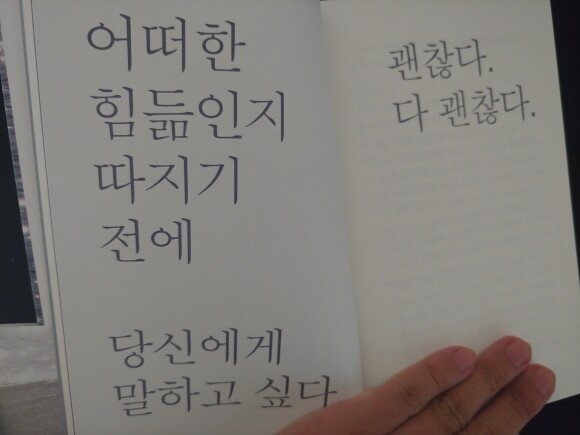 어떠한
힘듦인지
따지기
전에
당신에게
말하고 싶다
괜찮다.
다 괜찮다.